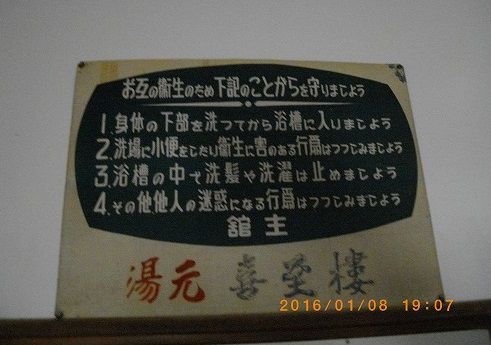 お互の衛生のため下記のことがらを守りましよう
1.身体の下部を洗つてから浴槽に入りましよう
2.洗場に小便をしたり衛生に害のある行爲はつつしみましよう
3.浴槽の中で洗髪や洗濯は止めましよう
4.その他他人の迷惑になる行爲はつつしみましよう
舘主
湯元 喜至樓
2016/01/08 19:07